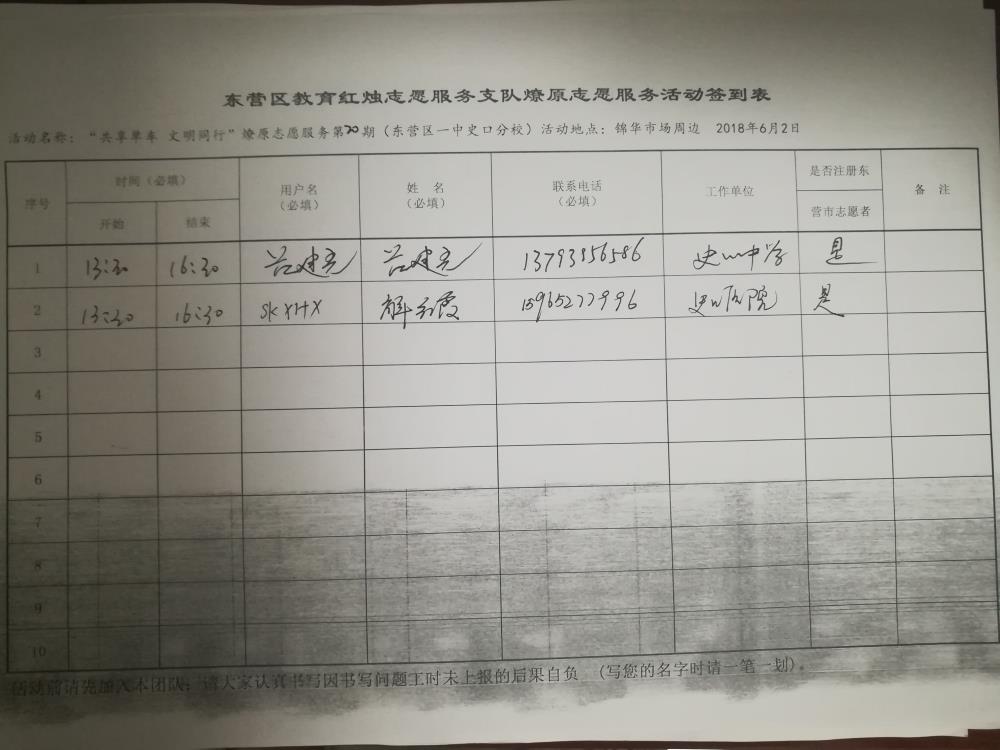 东营区教育红烛志愿服务支队燎原志愿服务活动签到表
活动名称：“共享单车 文明同行”燎原志愿服务第20期（东营区一中史口分校）活动地点：锦华市场周边 2018年6月2日
序号 时间（必填） 用户名（必填） 姓 名（必填） 联系电话（必填） 工作单位 是否注册东营市志愿者 备 注
开始 结束
1 13:30 16:30 吕建亮 吕建亮 13793956586 史口中学 是
2 13:30 16:30 SKXHX 解 霞 15965277996 史口医院 是
3
4
5
6
7
8
9
10
活动前请先加入本团队；请大家认真书写因书写问题工时未上报的后果自负 （写您的名字时请一笔一划）。